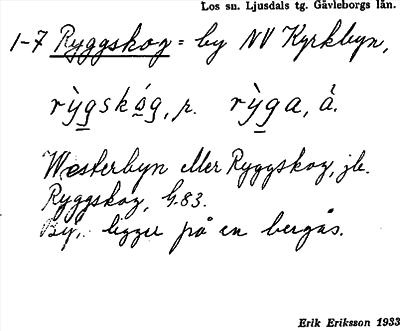 Los sn. Ljusdals tg. Gävleborgs län.
1-7 Ryggskog = by NV Kyrkbyn,
rỳgskóg, p. rỳga, å.
Wæsterbyn eller Ryggskog, jb.
Ryggskog, h.83.
By, ligger på en bergås.
Erik Eriksson 1933